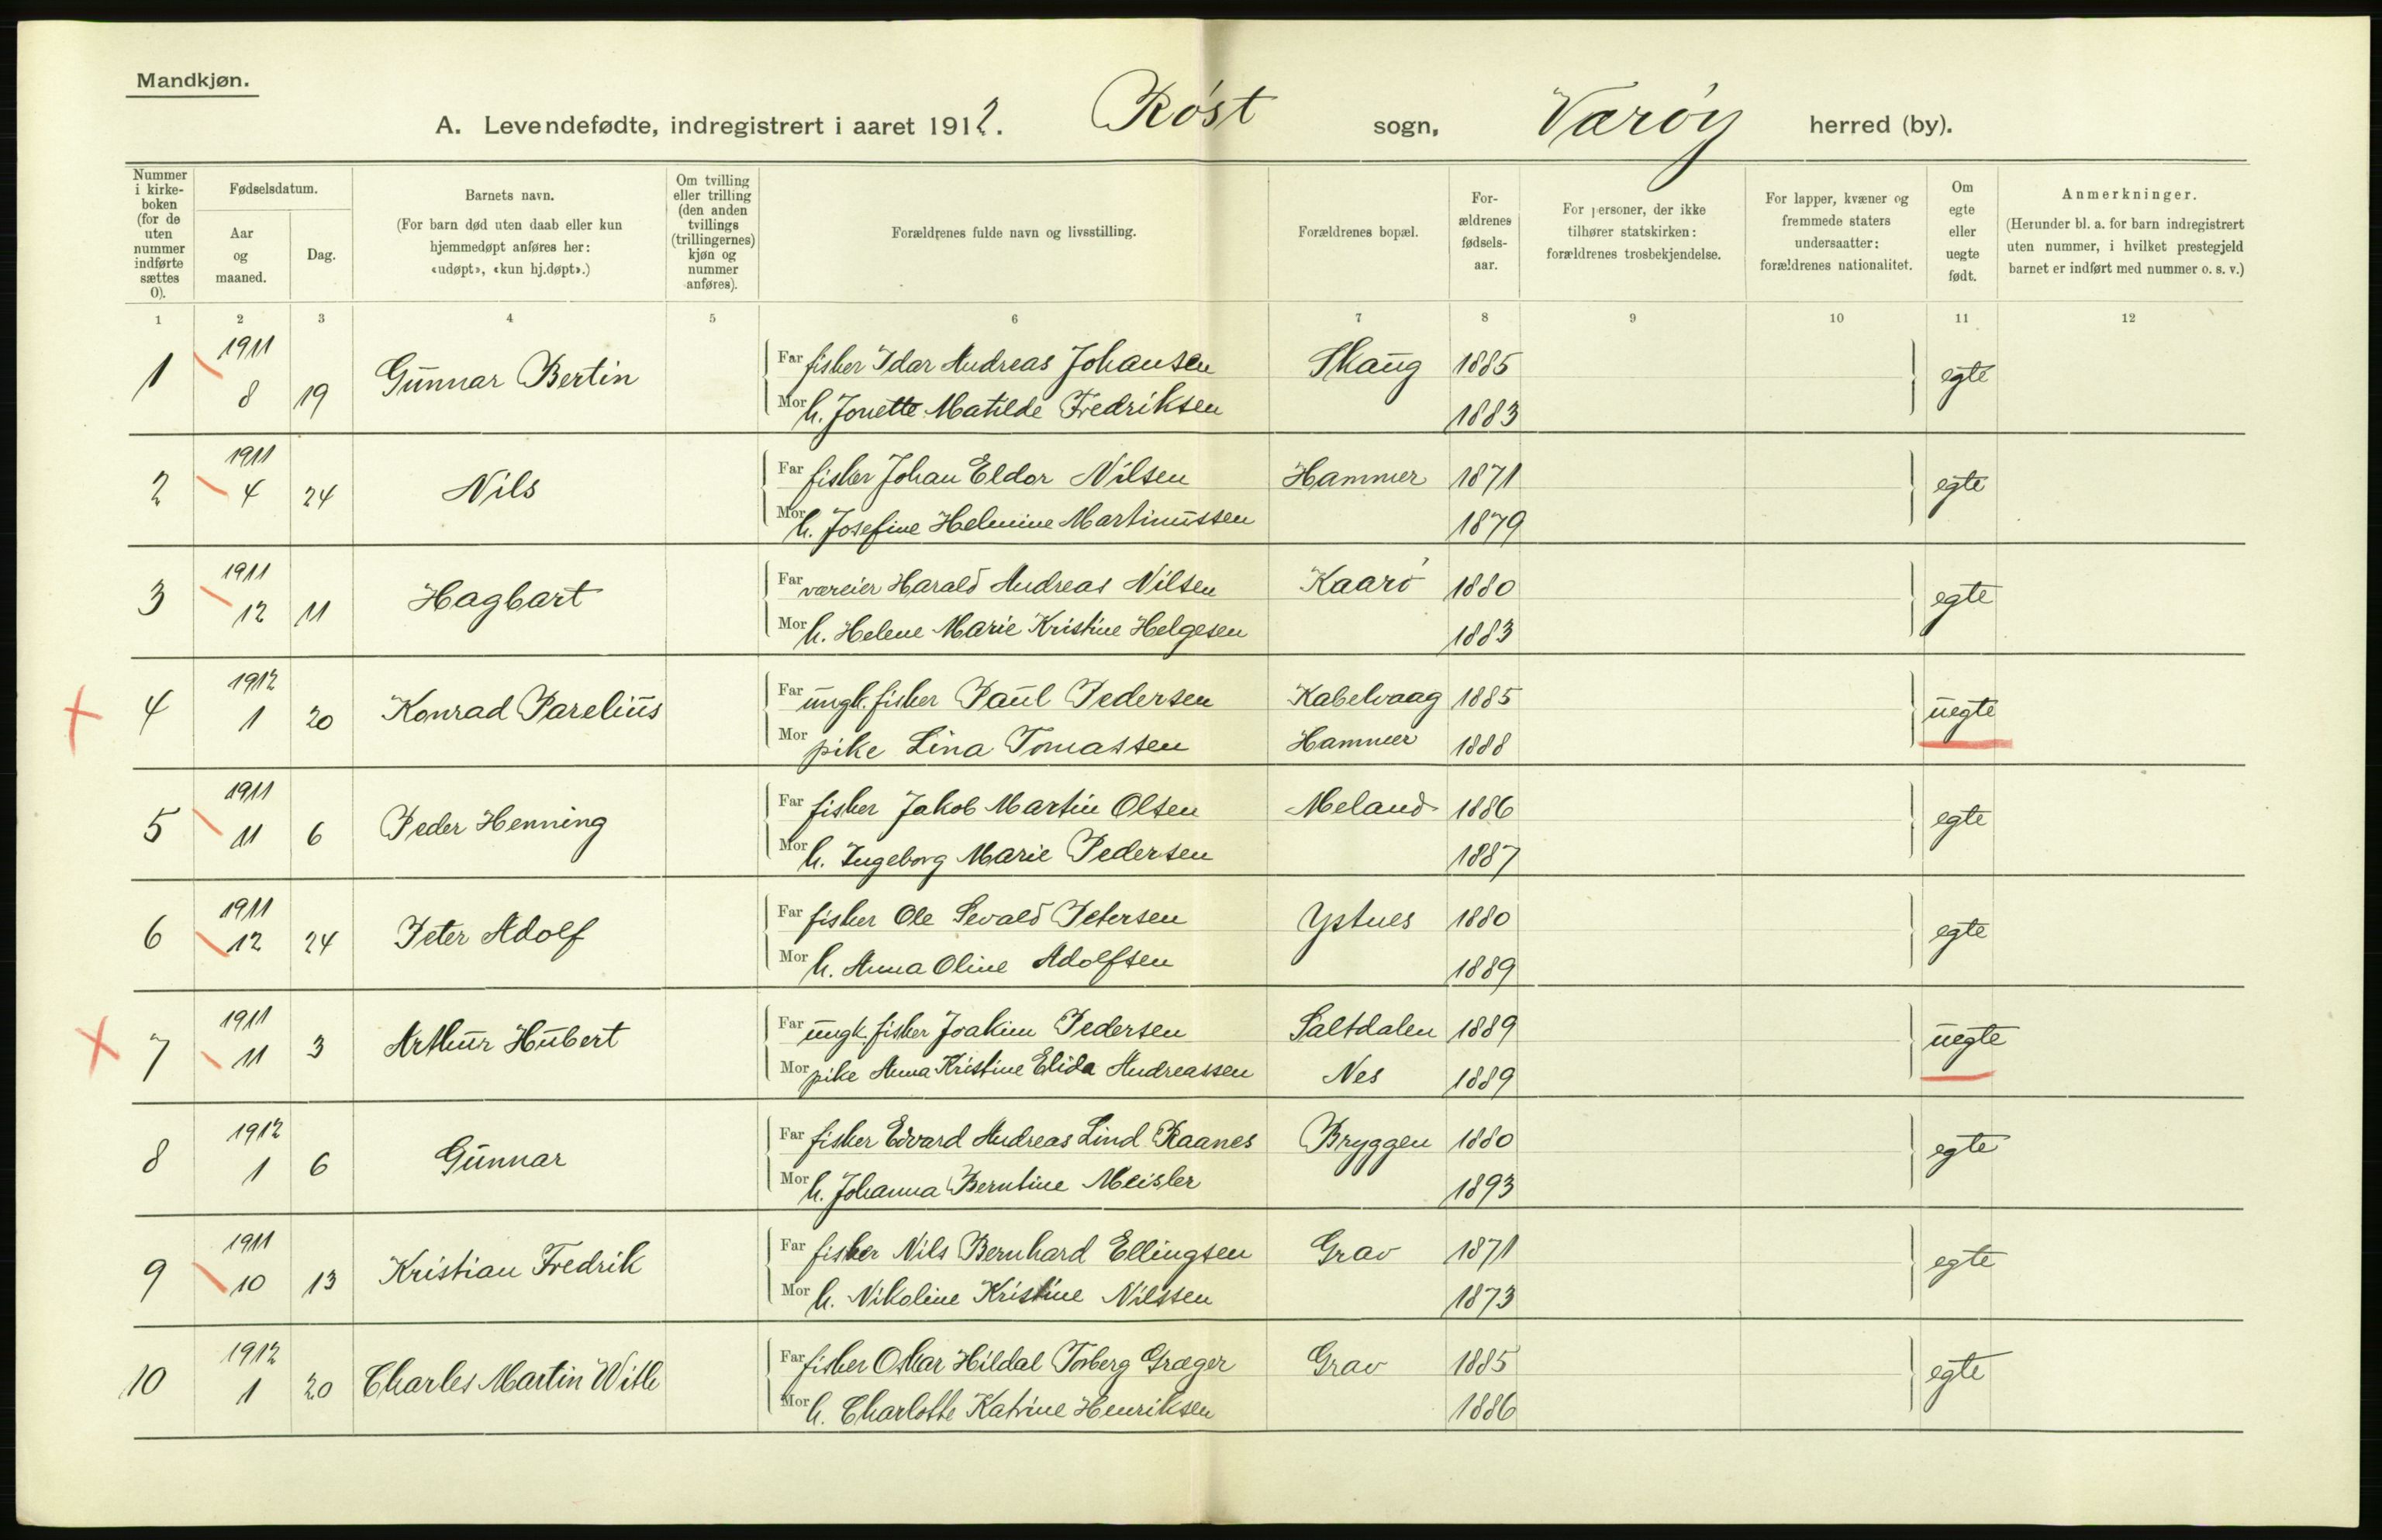 Mandkjøn.
A. Levendefødte, indregistrert i aaret 1912. Røst sogn, Værøy herred (by).
Nummer i kirke-boken (for de uten nummer indførte sættes 0).
Fødselsdatum.
Aar og maaned.
Dag.
Barnets navn.
(For barn død uten daab eller kun hjemmedøpt anføres her: «udøpt», «kun hj.døpt».)
Om tvilling eller trilling (den anden tvillings (trillingernes) kjøn og nummer anføres).
Forældrenes fulde navn og livsstilling.
Forældrenes bopæl.
For-ældrenes fødsels-aar.
For personer, der ikke tilhører statskirken: forældrenes trosbekjendelse.
For lapper, kvæner og fremmede staters undersaatter: forældrenes nationalitet.
Om egte eller uegte født.
Anmerkninger.
(Herunder bl. a. for barn indregistrert uten nummer, i hvilket prestegjeld barnet er indført med nummer o. s. v.)
1 2 3 4 5 6 7 8 9 10 11 12
1 1911 8 19 Gunnar Bertin Far fisker Idar Andreas Johansen Skaug 1885 egte
Mor h. Jonette Matilde Fredriksen 1883
2 1911 4 24 Nils Far fisker Johan Eldor Nilsen Hammer 1871 egte
Mor h. Josefine Helmine Martinussen 1879
3 1911 12 11 Hagbart Far væreier Harald Andreas Nilsen Kaarø 1880 egte
Mor h. Helene Marie Kristine Helgesen 1883
4 1912 1 20 Konrad Parelius Far ungk. fisker Paul Pedersen Kabelvaag 1885 uegte
Mor pike Lina Tomassen Hammer 1888
5 1911 11 6 Peder Henning Far fisker Jakob Martin Olsen Meland 1886 egte
Mor h. Ingeborg Marie Pedersen 1887
6 1911 12 24 Peter Adolf Far fisker Ole Sevald Petersen Ystnes 1880 egte
Mor h. Anna Oline Adolfsen 1889
7 1911 11 3 Arthur Hubert Far ungk. fisker Joakim Pedersen Saltdalen 1889 uegte
Mor pike Anna Kristine Elida Andreassen Nes 1889
8 1912 1 6 Gunnar Far fisker Edvard Andreas Lind Raanes Bryggen 1880 egte
Mor h. Johanna Berntine Meisler 1893
9 1911 10 13 Kristian Fredrik Far fisker Nils Bernhard Ellingsen Grav 1871 egte
Mor h. Nikoline Kristine Nilssen 1873
10 1912 1 20 Charles Martin Far fisker Oskar Hildal Torberg Græger Grav 1885 egte
Mor h. Charlotte Katrine Henriksen 1886